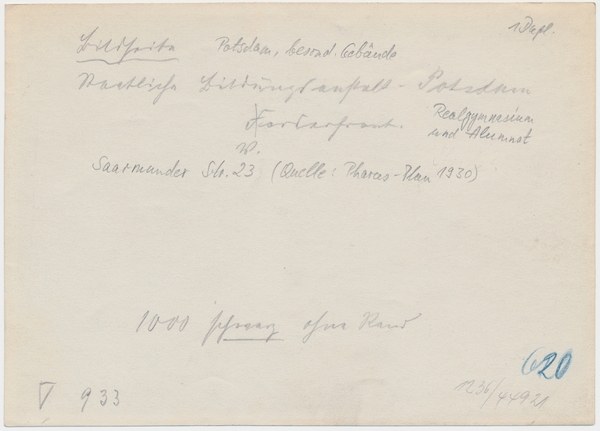 1 Dupl.
Bildseite Potsdam, besond. Gebäude
Staatliche Bildungsanstalt - Potsdam
Vorderfront. Realgymnasium
und Alumnat
W.
Saarmunder Str. 23 (Quelle: Pharus-Plan 1930)
1000 schwarz ohne Rand
620
933
1236/44921